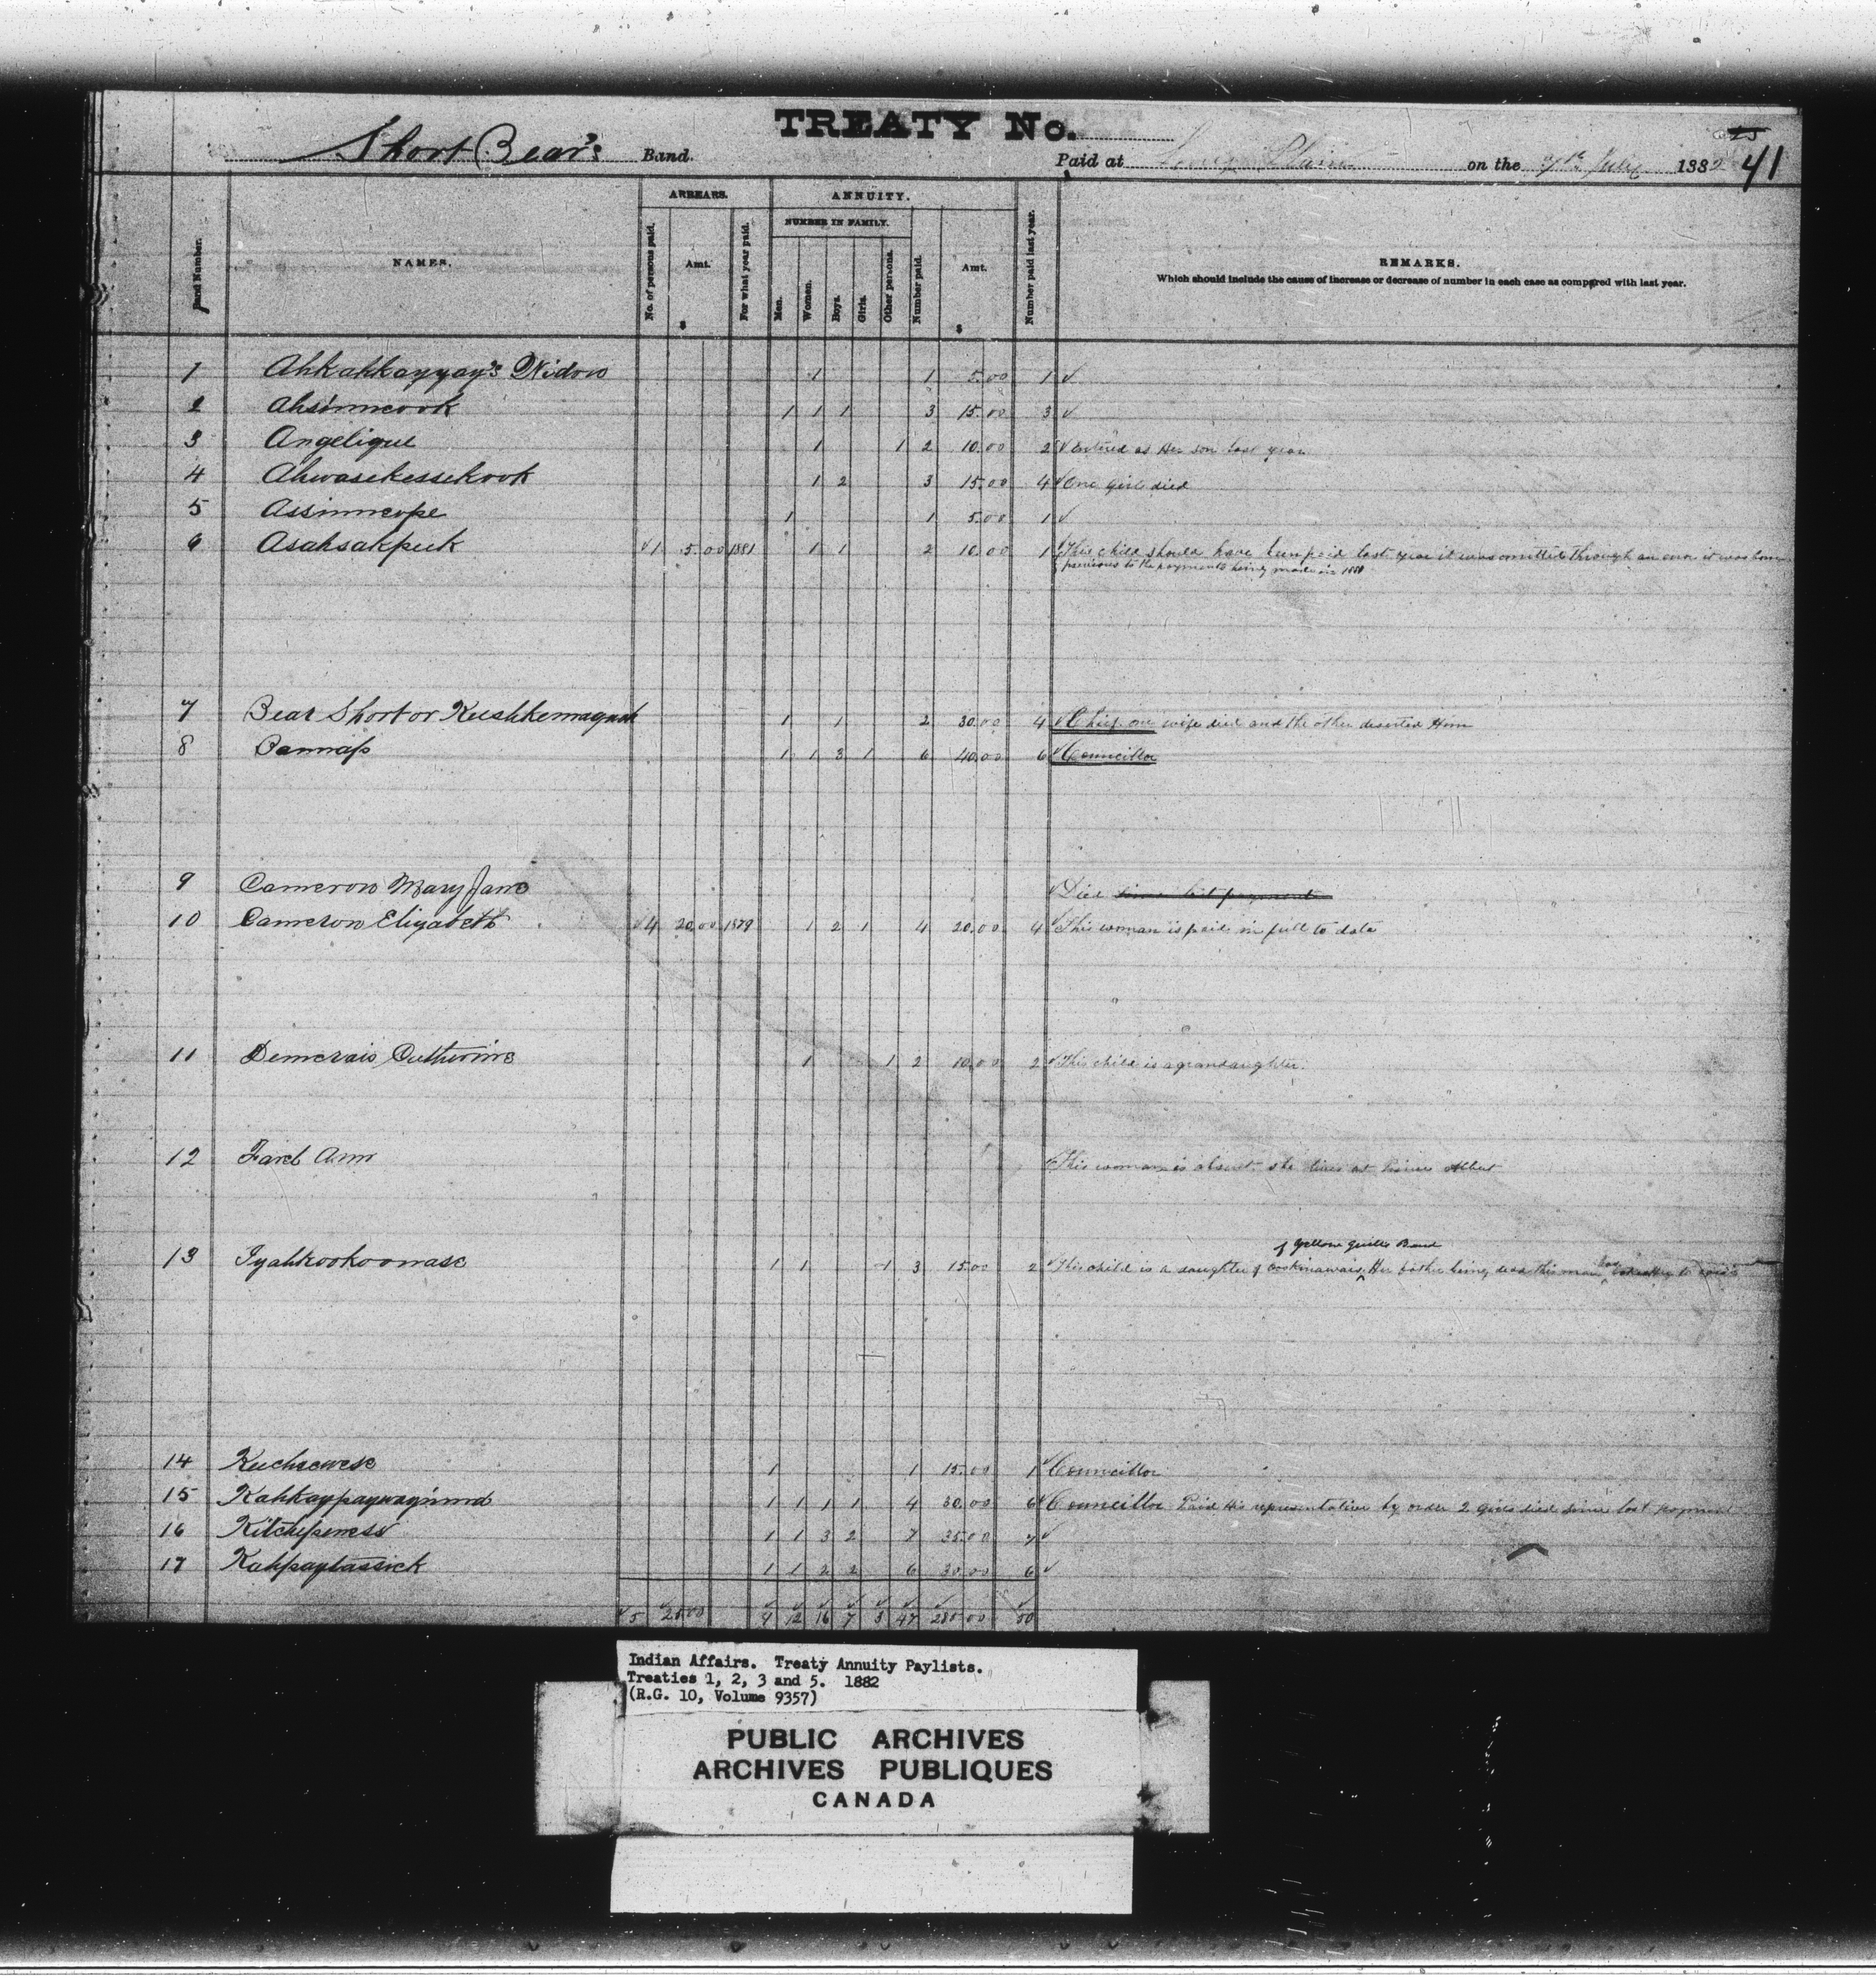 TREATY No.
Short Bear's Band. Paid at Long Plain on the 7th July 1882 25 41
Band Number. NAMES. ARREARS. No. of persons paid. Amt. $ For what year paid. ANNUITY. NUMBER IN FAMILY. Men. Women. Boys. Girls. Other persons. Number paid. Amt. $ Number paid last year. REMARKS.
Which should include the cause of increase or decrease of number in each case as compared with last year.
1 Ahkahkayyay's Widow 1 1 5.00 1 ✓
2 Ahsinncook 1 1 1 3 15.00 3 ✓
3 Angelique 1 1 2 10.00 2 ✓ Entered as Her son last year
4 Ahwasekessekook 1 2 3 15.00 4 ✓ One Girl died
5 Assinneope 1 1 5.00 1 ✓
6 Asahsakpeek ✓ 1 5.00 1881 1 1 2 10.00 1 ✓ This child should have been paid last year it was omitted through an error it was born
previous to the payments being made in 1881
7 Bear Short or Keeshkemaquah 1 1 2 30.00 4 ✓ Chief one wife died and the other deserted Him
8 Bennass 1 1 3 1 6 40.00 6 ✓ Councillor
9 Cameron Mary Jane ✓ Died since last payment
10 Cameron Elizabeth ✓ 4 20.00 1879 1 2 1 4 20.00 4 ✓ This woman is paid in full to date
11 Demerais Catherine 1 1 2 10.00 2 ✓ This child is a grandaughter.
12 Ann ✓ This woman is absent she lives at Prince Albert
of Yellow Quills Band
13 Iyahkookoonase 1 1 1 3 15.00 2 ✓ This child is a daughter of Her father being dead this man has to
14 Keechewese 1 1 15.00 1 ✓ Councillor
15 Kahkaypaywaynind 1 1 1 1 4 30.00 6 ✓ Councillor Paid His representative by order 2 Girls died since last payment
16 Kitchepeness 1 1 3 2 7 35.00 7 ✓
17 Kahpaytassick 1 1 2 2 6 30.00 6 ✓
✓ 5 25.00 9 12 16 7 3 47 280.00 50
Indian Affairs. Treaty Annuity Paylists.
Treaties 1, 2, 3 and 5. 1882
(R.G. 10, Volume 9357)
PUBLIC ARCHIVES
ARCHIVES PUBLIQUES
CANADA